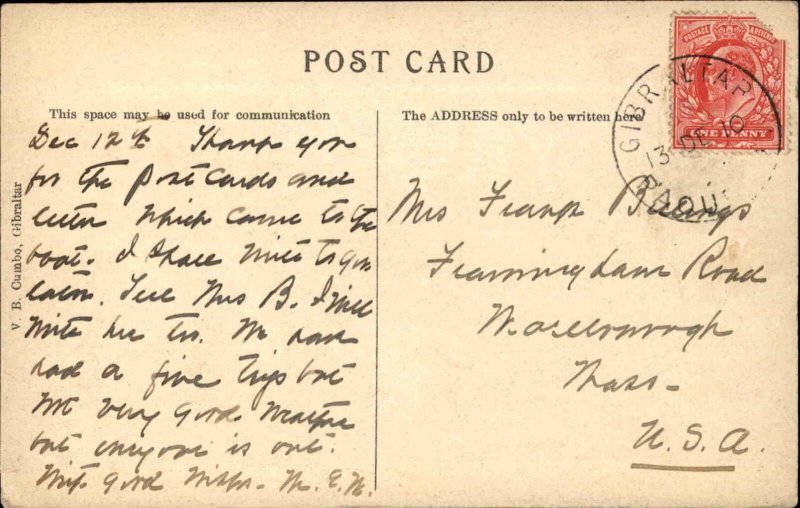 POST CARD
This space may be used for communication
The ADDRESS only to be written here
POSTAGE REVENUE
ONE PENNY
GIBRALTAR
13 DE 10
PAQU
V. B. Cumbo, Gibraltar
Dec 12th Thank you
for the post cards and
letter which came to the
boat. I shall write to you
later. Tell Mrs B. I will
write her too. We have
had a fine trip but
not very good weather
but everyone is out.
With good wishes. M. E. W.
Mrs Frank Billings
Framingham Road
Marlborough
Mass-
U.S.A.